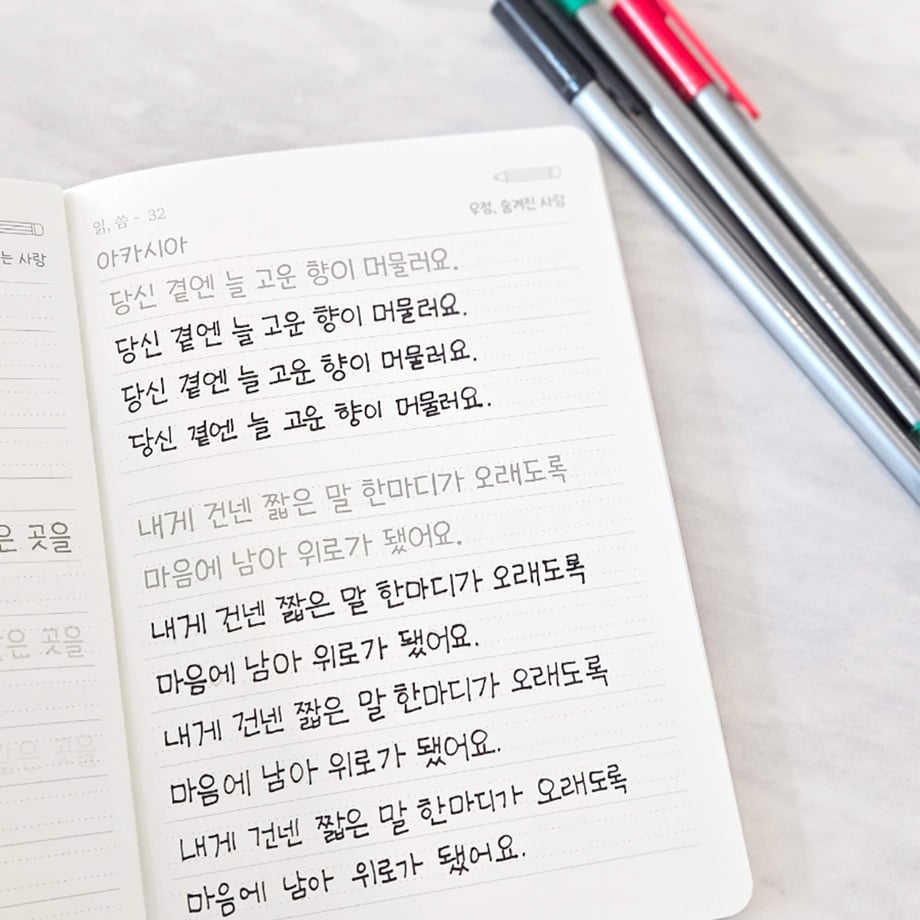 는 사랑
은 곳을
은 곳을
같은 곳을
읽, 씀 - 32
우정, 숨겨진 사랑
아카시아
당신 곁엔 늘 고운 향이 머물러요.
당신 곁엔 늘 고운 향이 머물러요.
당신 곁엔 늘 고운 향이 머물러요.
당신 곁엔 늘 고운 향이 머물러요.
내게 건넨 짧은 말 한마디가 오래도록
마음에 남아 위로가 됐어요.
내게 건넨 짧은 말 한마디가 오래도록
마음에 남아 위로가 됐어요.
내게 건넨 짧은 말 한마디가 오래도록
마음에 남아 위로가 됐어요.
내게 건넨 짧은 말 한마디가 오래도록
마음에 남아 위로가 됐어요.